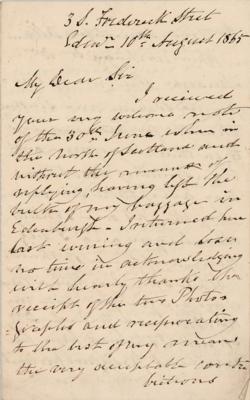 3 S. Frederick Street
Edinr 10th August 1865
My Dear Sir
I received
your my welcome note
of the 30th June when in
the North of Scotland and
without the means of
replying, having left the
bulk of my baggage in
Edinburgh - I returned here
last evening and lose
no time in acknowledging
with hearty thanks the
receipt of the two Photo-
graphs and reciprocating
to the best of my means
the very acceptable contri
butions